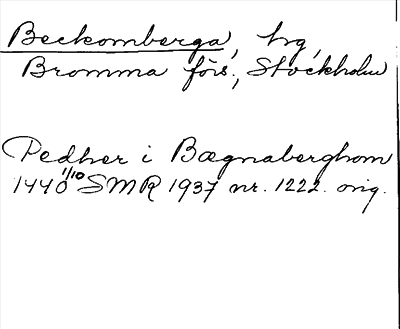 Beckomberga, hg,
Bromma förs., Stockholm
Pedher i Bægnaberghom
1440 1/10 SMR 1937 nr. 1222. orig.